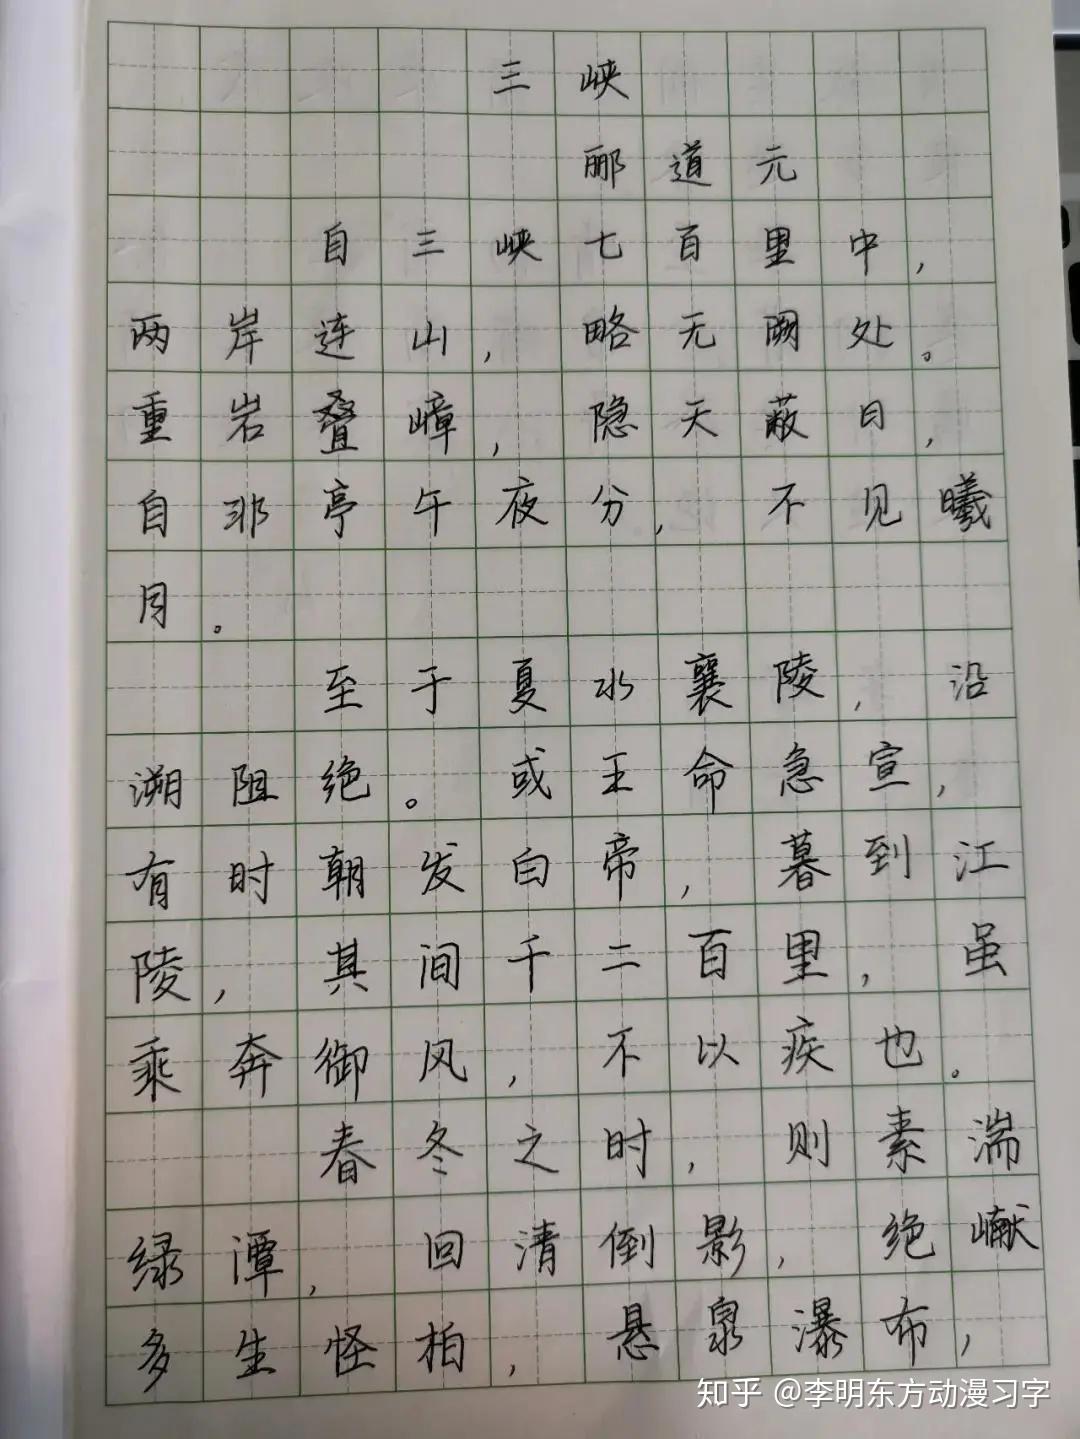 三峡
郦道元
自三峡七百里中，
两岸连山，略无阙处。
重岩叠嶂，隐天蔽日，
自非亭午夜分，不见曦
月。
至于夏水襄陵，沿
溯阻绝。或王命急宣，
有时朝发白帝，暮到江
陵，其间千二百里，虽
乘奔御风，不以疾也。
春冬之时，则素湍
绿潭，回清倒影，绝巘
多生怪柏，悬泉瀑布，
知乎 @李明东方动漫习字